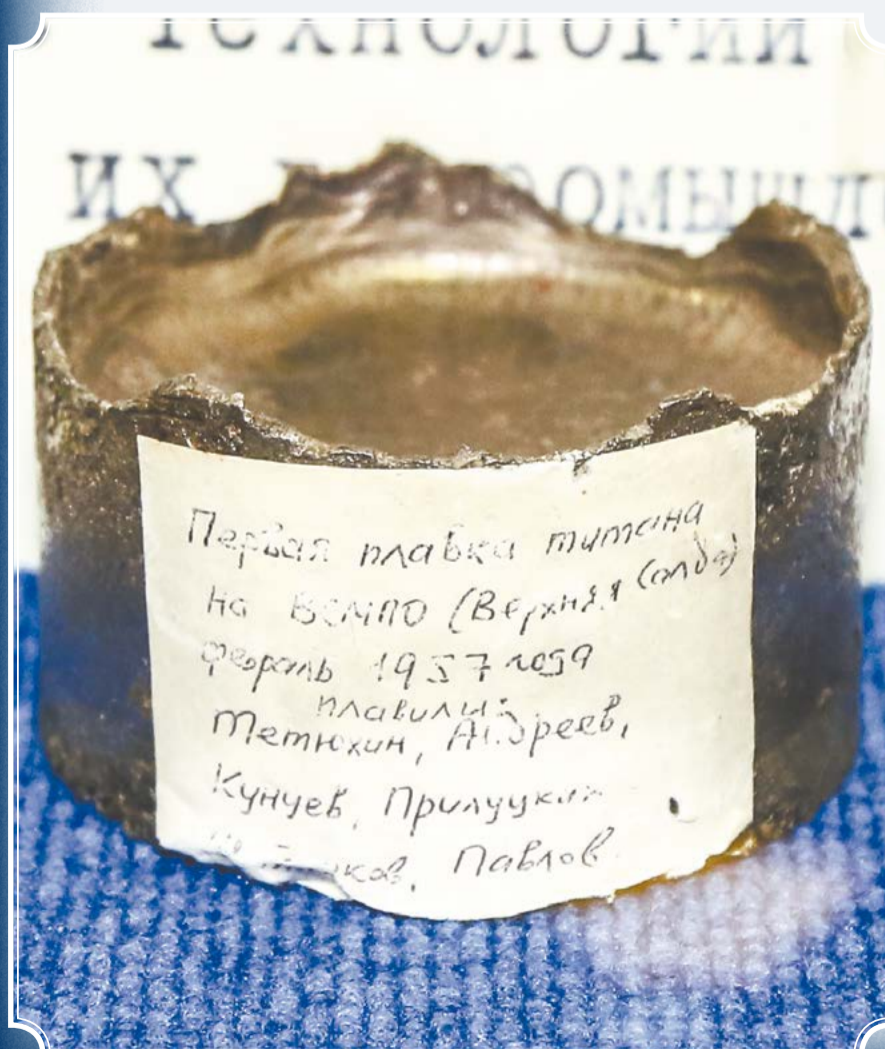 технологии
их
Первая плавка титана
на ВСМПО (Верхняя Салда)
февраль 1957 года
плавили:
Тетюхин, Андреев,
Кунчев, Прилуцких
Павлов